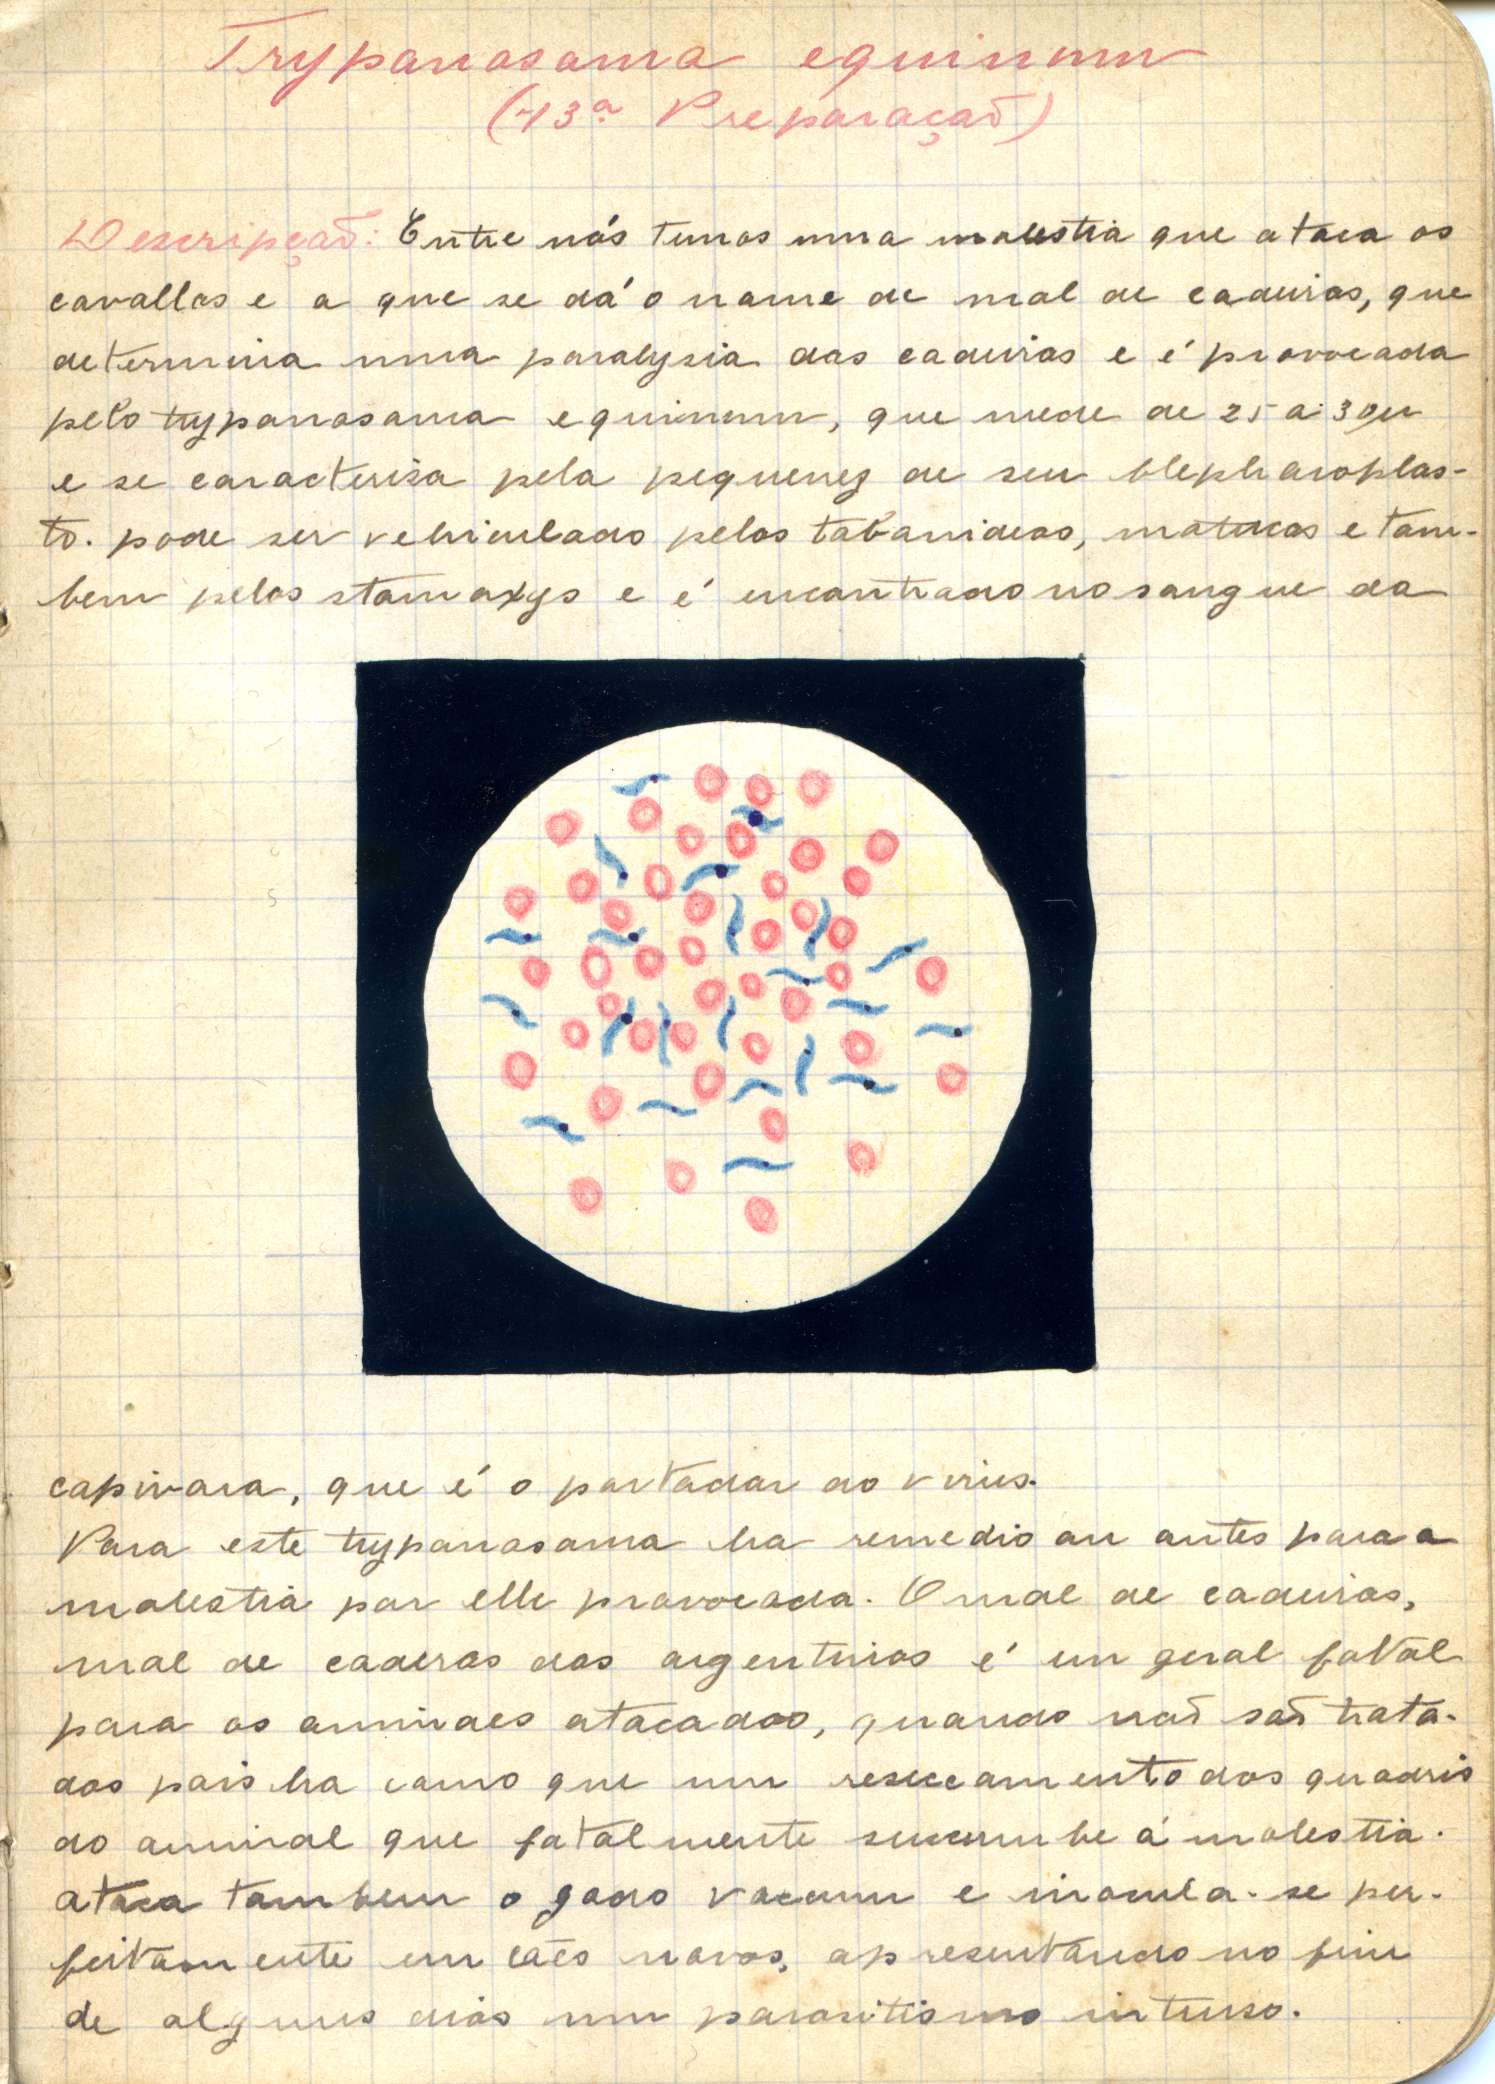 Trypanosoma equinum
(13ª Preparação)
Descripção: Entre nós temos uma molestia que ataca os
cavallos e a que se dá o nome de mal de cadeiras, que
determina uma paralysia das cadeiras e é provocada
pelo trypanosoma equinum, que mede de 25 a 30µ
e se caracterisa pela pequenez de seu blepharoplas-
to. pode ser vehiculado pelos tabanideos, mutucas e tam-
bem pelos stomoxys e é encontrado no sangue da
capivara, que é o portador do virus.
Para este trypanosoma ha remedio ou antes para a
molestia por elle provocada. O mal de cadeiras,
mal de caderas dos argentinos é em geral fatal
para os animaes atacados, quando não são trata-
dos pois ha como que um reseccamento dos quadris
do animal que fatalmente sucumbe á molestia.
ataca tambem o gado vaccum e inocula-se per-
feitamente em cães novos, apresentando no fim
de alguns dias um parasitismo intenso.